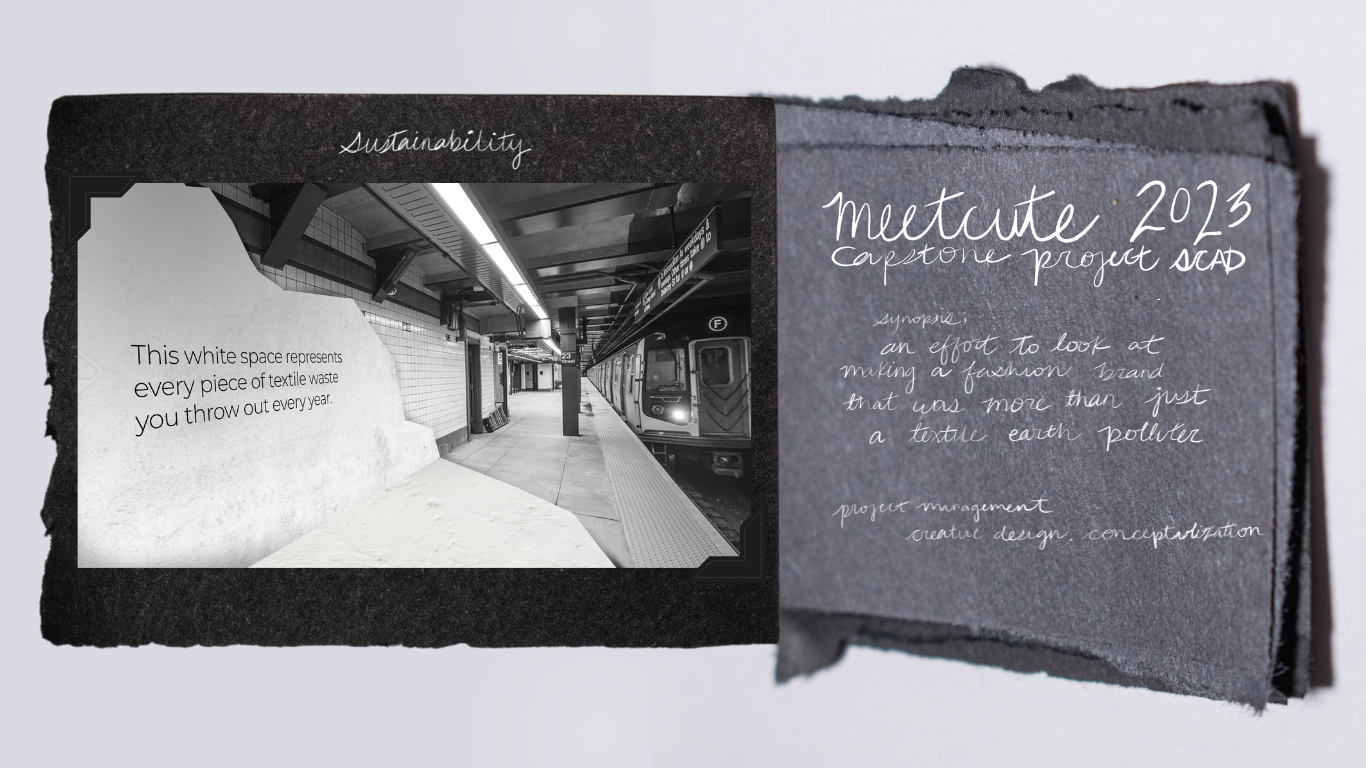 Sustainability
This white space represents
every piece of textile waste
you throw out every year.
F
23
Street
meetcute 2023
Capstone project SCAD
synopsis;
an effort to look at
making a fashion brand
that was more than just
a textile earth polluter
project management
creative design, conceptualization